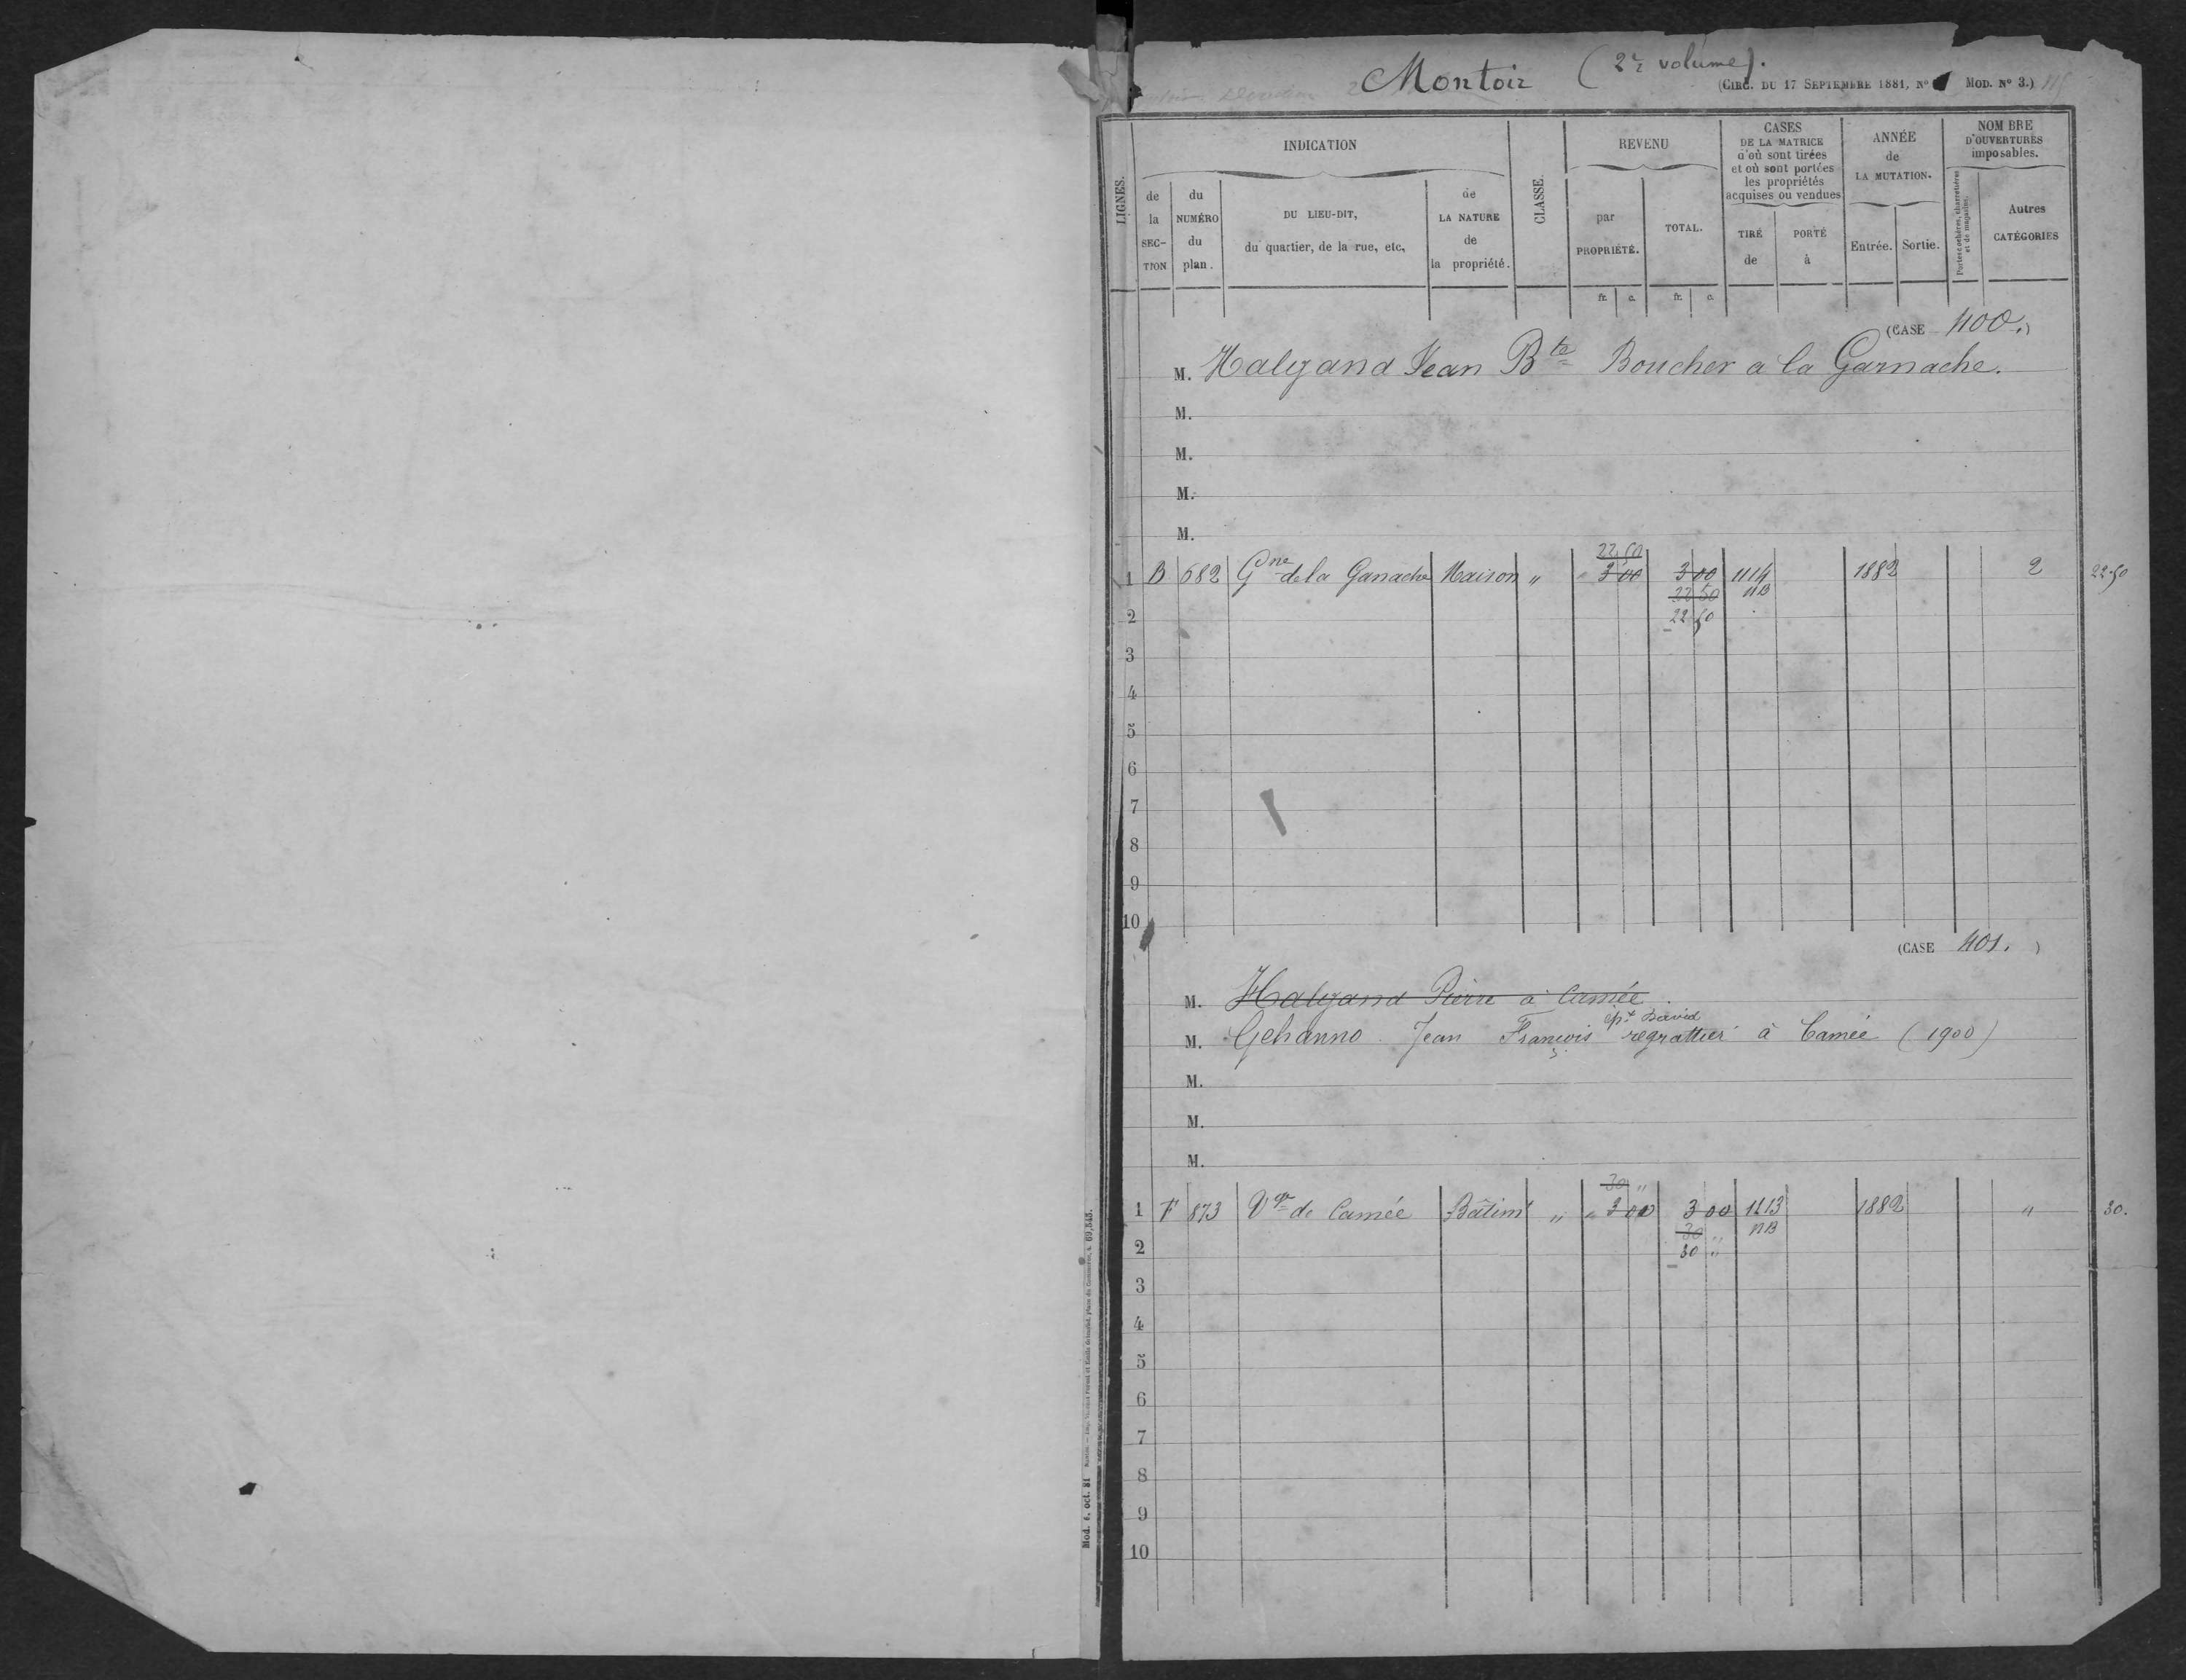 Montoir (2e volume).
(CIRC. DU 17 SEPTEMBRE 1881, No Mod. No 3.)
LIGNES.
INDICATION
de la SECTION
du NUMÉRO du plan.
DU LIEU-DIT, du quartier, de la rue, etc,
de LA NATURE de la propriété.
CLASSE.
REVENU
par PROPRIÉTÉ.
TOTAL.
fr. c. fr. c.
CASES DE LA MATRICE d'où sont tirées et où sont portées les propriétés acquises ou vendues
TIRÉ de
PORTÉ à
ANNÉE de LA MUTATION.
Entrée. Sortie.
NOMBRE D'OUVERTURES imposables.
Portes cochères, charretières et de magasins.
Autres CATÉGORIES
(CASE 400.)
M. Halgand Jean Bte Boucher a la Garnache.
M.
M.
M.
M.
22 50
1 B 682 Gne de la Ganache Maison " " 3 00 3 00 1114 1882 2 22.50
22 50 NB
2 22 50
3
4
5
6
7
8
9
10
(CASE 401. )
M. Halgand Pierre à Camée
épx David
M. Gehanno Jean François regrattier à Camée (1900)
M.
M.
M.
30 "
1 F 873 Vge de Camée Bâtimt " " 3 00 3 00 1113 1882 " 30.
30 " NB
2 30 "
3
4
5
6
7
8
9
10
Mod. 6. oct. 81